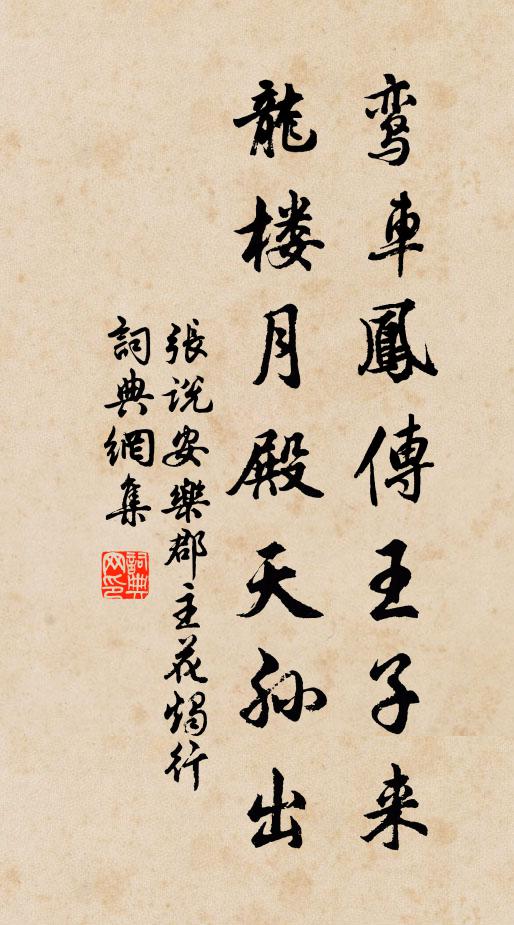 鸾車鳳傳王子来
龍楼月殿天孫出
張説安樂郡主花燭行
詞典網集
詞典網印